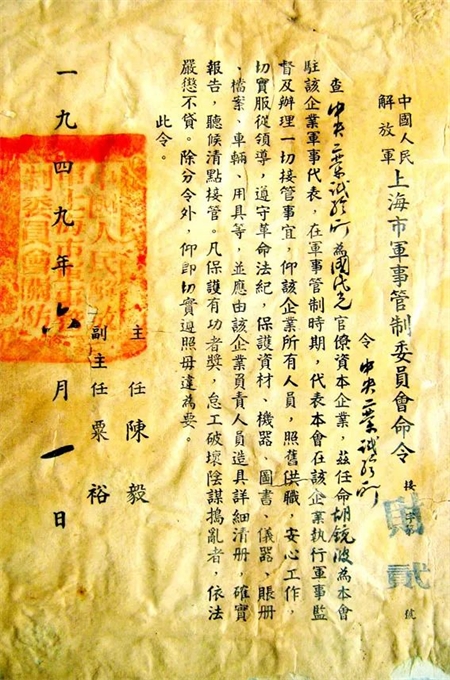 中國人民
解放軍
上海市軍事管制委員會命令 接字 財貳 號
令 中央工業試驗所
查中央工業試驗所為國民党官僚資本企業，茲任命胡鏡波為本會
駐該企業軍事代表，在軍事管制時期，代表本會在該企業執行軍事監
督及辦理一切接管事宜，仰該企業所有人員，照舊供職，安心工作，
切實服從領導，遵守革命法紀，保護資材、機器、圖書、儀器、賬册
、檔案、車輛、用具等，並應由該企業負責人員造具詳細清册，確實
報告，聽候清點接管。凡保護有功者獎，怠工破壞陰謀搗亂者，依法
嚴懲不貸。除分令外，仰即切實遵照毋違為要。
此令。
主任 陳毅
副主任 粟裕
一九四九年六月一日